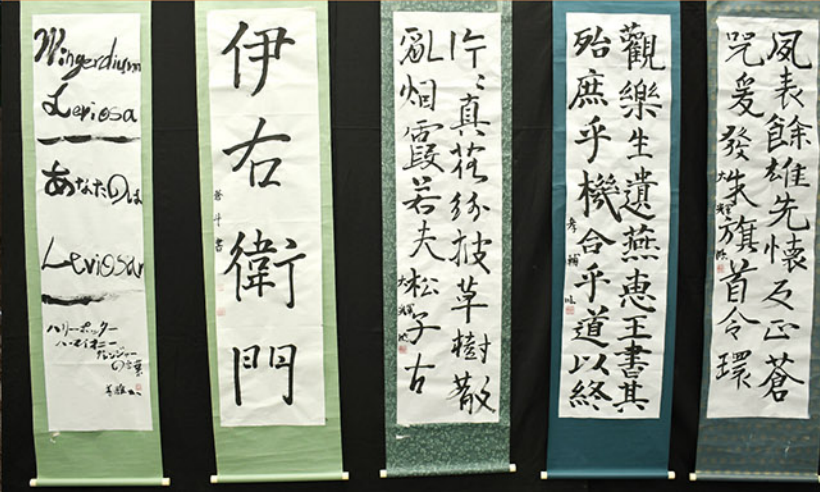 Wingerdium
Leviosa
あなたのは
Leviosar
ハリーポッター
ハーマイオニー
グレンジャー
の言葉
伊右衛門
蒼斗書
真花紛披草樹散
亂烟霞若夫松子古
觀樂生遺燕惠王書其
殆庶乎機合乎道以終
夙表餘雄先懐反正蒼
咒爰發朱旗首令環